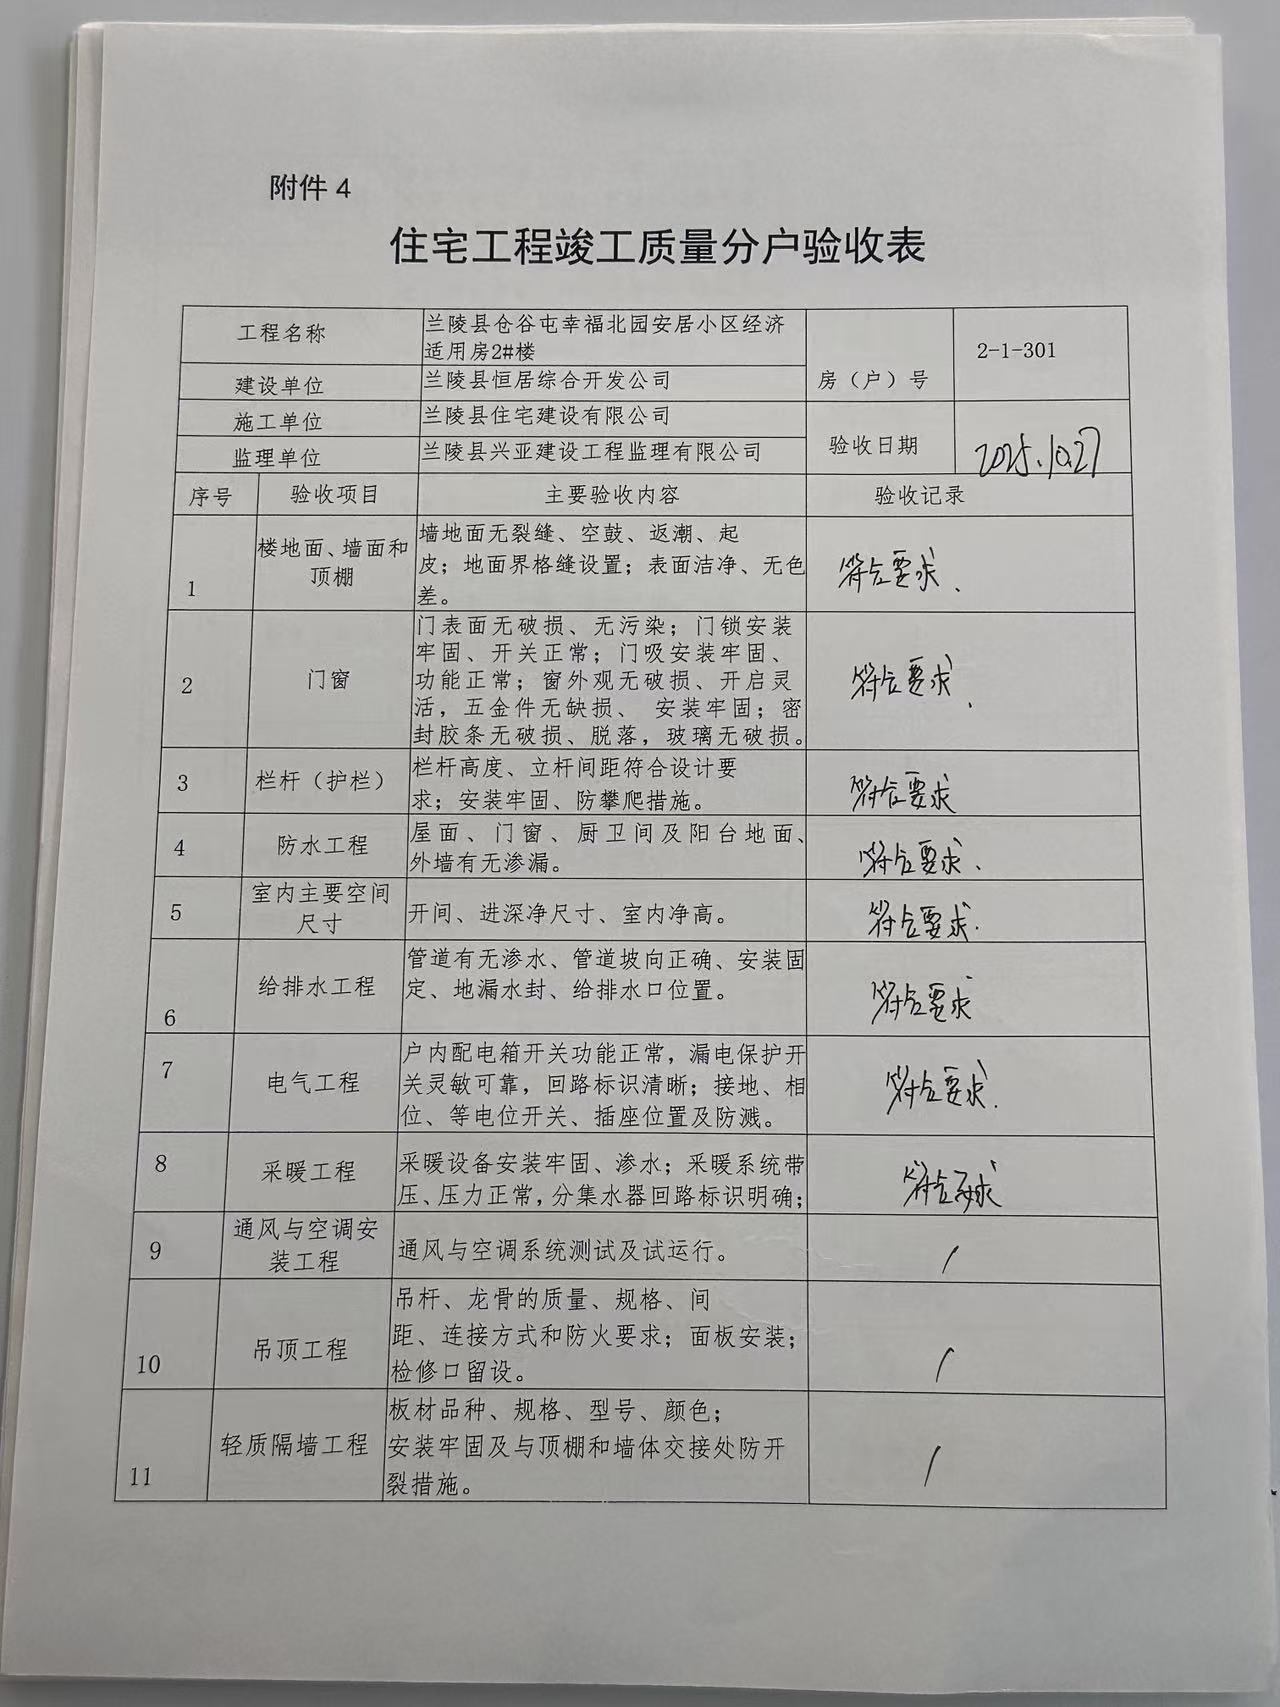 附件 4
住宅工程竣工质量分户验收表
工程名称
兰陵县仓谷屯幸福北园安居小区经济
适用房2#楼
房（户）号
2-1-301
建设单位
兰陵县恒居综合开发公司
施工单位
兰陵县住宅建设有限公司
验收日期
2025.10.27
监理单位
兰陵县兴亚建设工程监理有限公司
序号
验收项目
主要验收内容
验收记录
1
楼地面、墙面和
顶棚
墙地面无裂缝、空鼓、返潮、起
皮；地面界格缝设置；表面洁净、无色
差。
符合要求.
2
门窗
门表面无破损、无污染；门锁安装
牢固、开关正常；门吸安装牢固、
功能正常；窗外观无破损、开启灵
活，五金件无缺损、 安装牢固；密
封胶条无破损、脱落，玻璃无破损。
符合要求.
3
栏杆（护栏）
栏杆高度、立杆间距符合设计要
求；安装牢固、防攀爬措施。
符合要求
4
防水工程
屋面、门窗、厨卫间及阳台地面、
外墙有无渗漏。
符合要求.
5
室内主要空间
尺寸
开间、进深净尺寸、室内净高。
符合要求.
6
给排水工程
管道有无渗水、管道坡向正确、安装固
定、地漏水封、给排水口位置。
符合要求
7
电气工程
户内配电箱开关功能正常，漏电保护开
关灵敏可靠，回路标识清晰；接地、相
位、等电位开关、插座位置及防溅。
符合要求.
8
采暖工程
采暖设备安装牢固、渗水；采暖系统带
压、压力正常，分集水器回路标识明确；
符合要求
9
通风与空调安
装工程
通风与空调系统测试及试运行。
/
10
吊顶工程
吊杆、龙骨的质量、规格、间
距、连接方式和防火要求；面板安装；
检修口留设。
/
11
轻质隔墙工程
板材品种、规格、型号、颜色；
安装牢固及与顶棚和墙体交接处防开
裂措施。
/